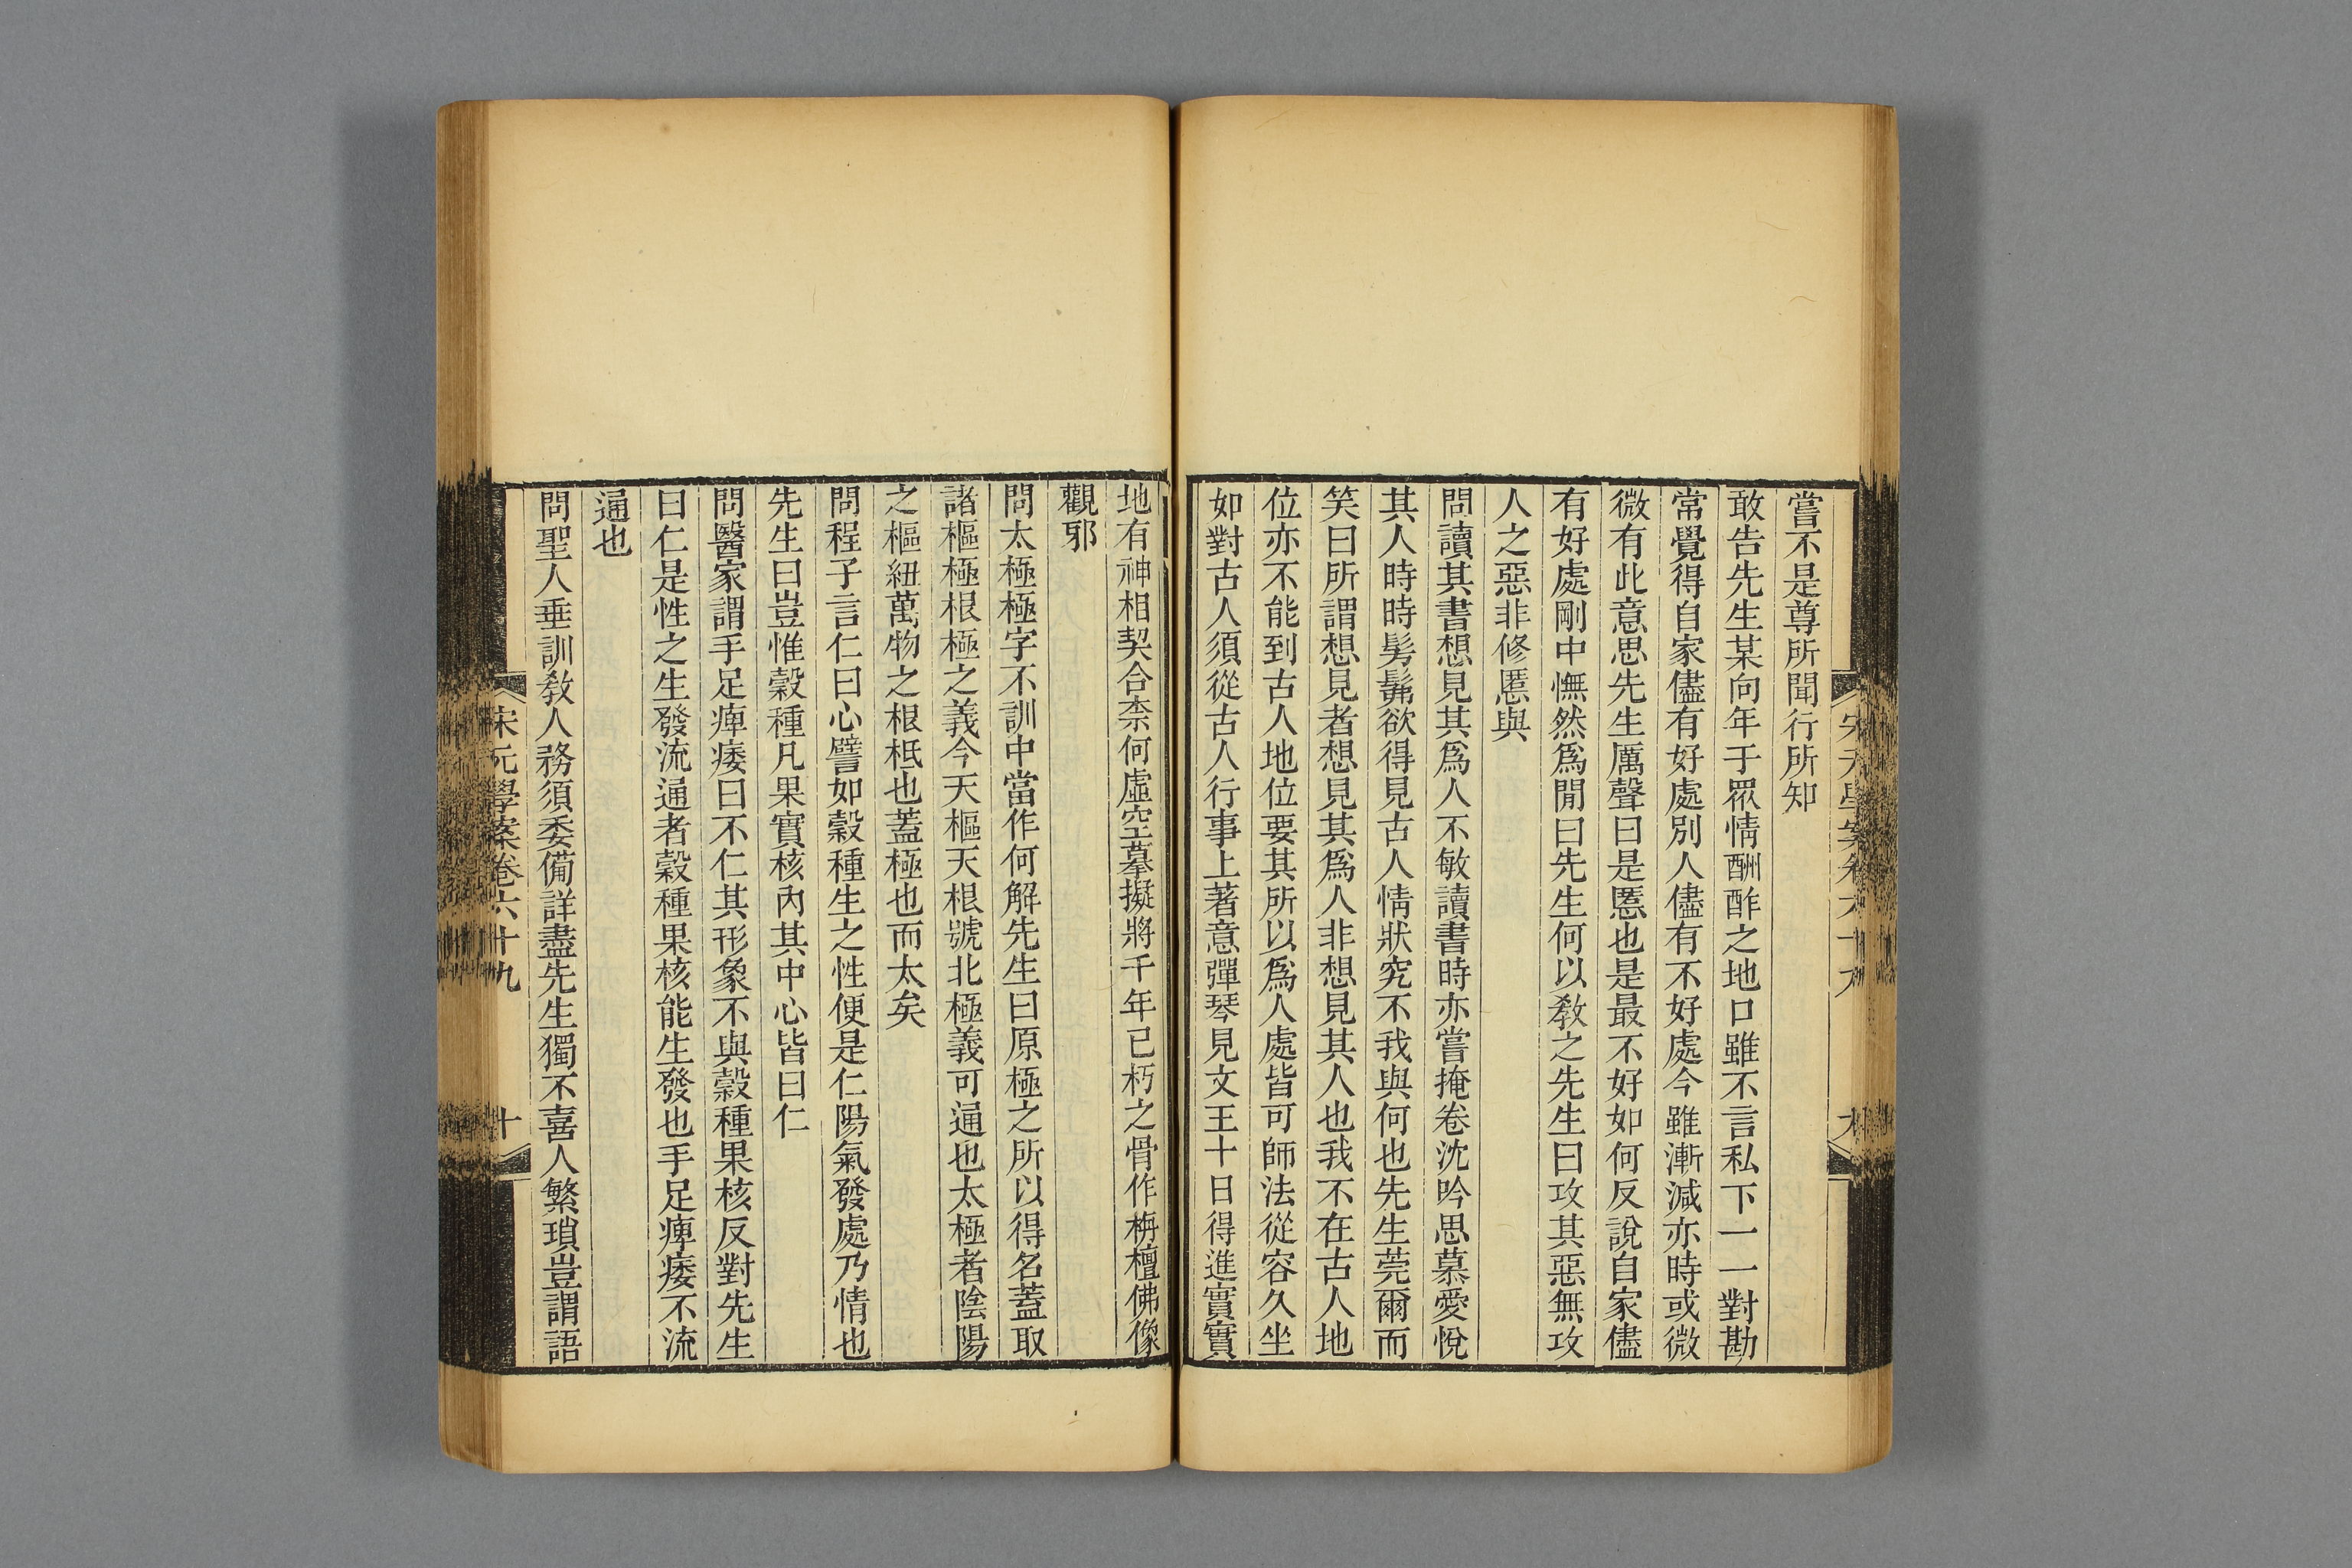 嘗不是尊所聞行所知
敢告先生某向年于眾情酬酢之地口雖不言私下一一對勘
常覺得自家儘有好處別人儘有不好處今雖漸減亦時或微
微有此意思先生厲聲曰是慝也是最不好如何反說自家儘
有好處剛中憮然爲閒曰先生何以教之先生曰攻其惡無攻
人之惡非修慝與
問讀其書想見其爲人不敏讀書時亦嘗掩卷沈吟思慕愛悅
其人時時髣髴欲得見古人情狀究不我與何也先生莞爾而
笑曰所謂想見者想見其爲人非想見其人也我不在古人地
位亦不能到古人地位要其所以爲人處皆可師法從容久坐
如對古人須從古人行事上著意彈琴見文王十日得進實實
地有神相契合柰何虛空摹擬將千年已朽之骨作栴檀佛像
觀邪
問太極極字不訓中當作何解先生曰原極之所以得名蓋取
諸樞極根極之義今天樞天根號北極義可通也太極者陰陽
之樞紐萬物之根柢也蓋極也而太矣
問程子言仁曰心譬如穀種生之性便是仁陽氣發處乃情也
先生曰豈惟穀種凡果實核內其中心皆曰仁
問醫家謂手足痺痿曰不仁其形象不與穀種果核反對先生
曰仁是性之生發流通者穀種果核能生發也手足痺痿不流
通也
問聖人垂訓教人務須委備詳盡先生獨不喜人繁瑣豈謂語
宋元學案卷六十九
十